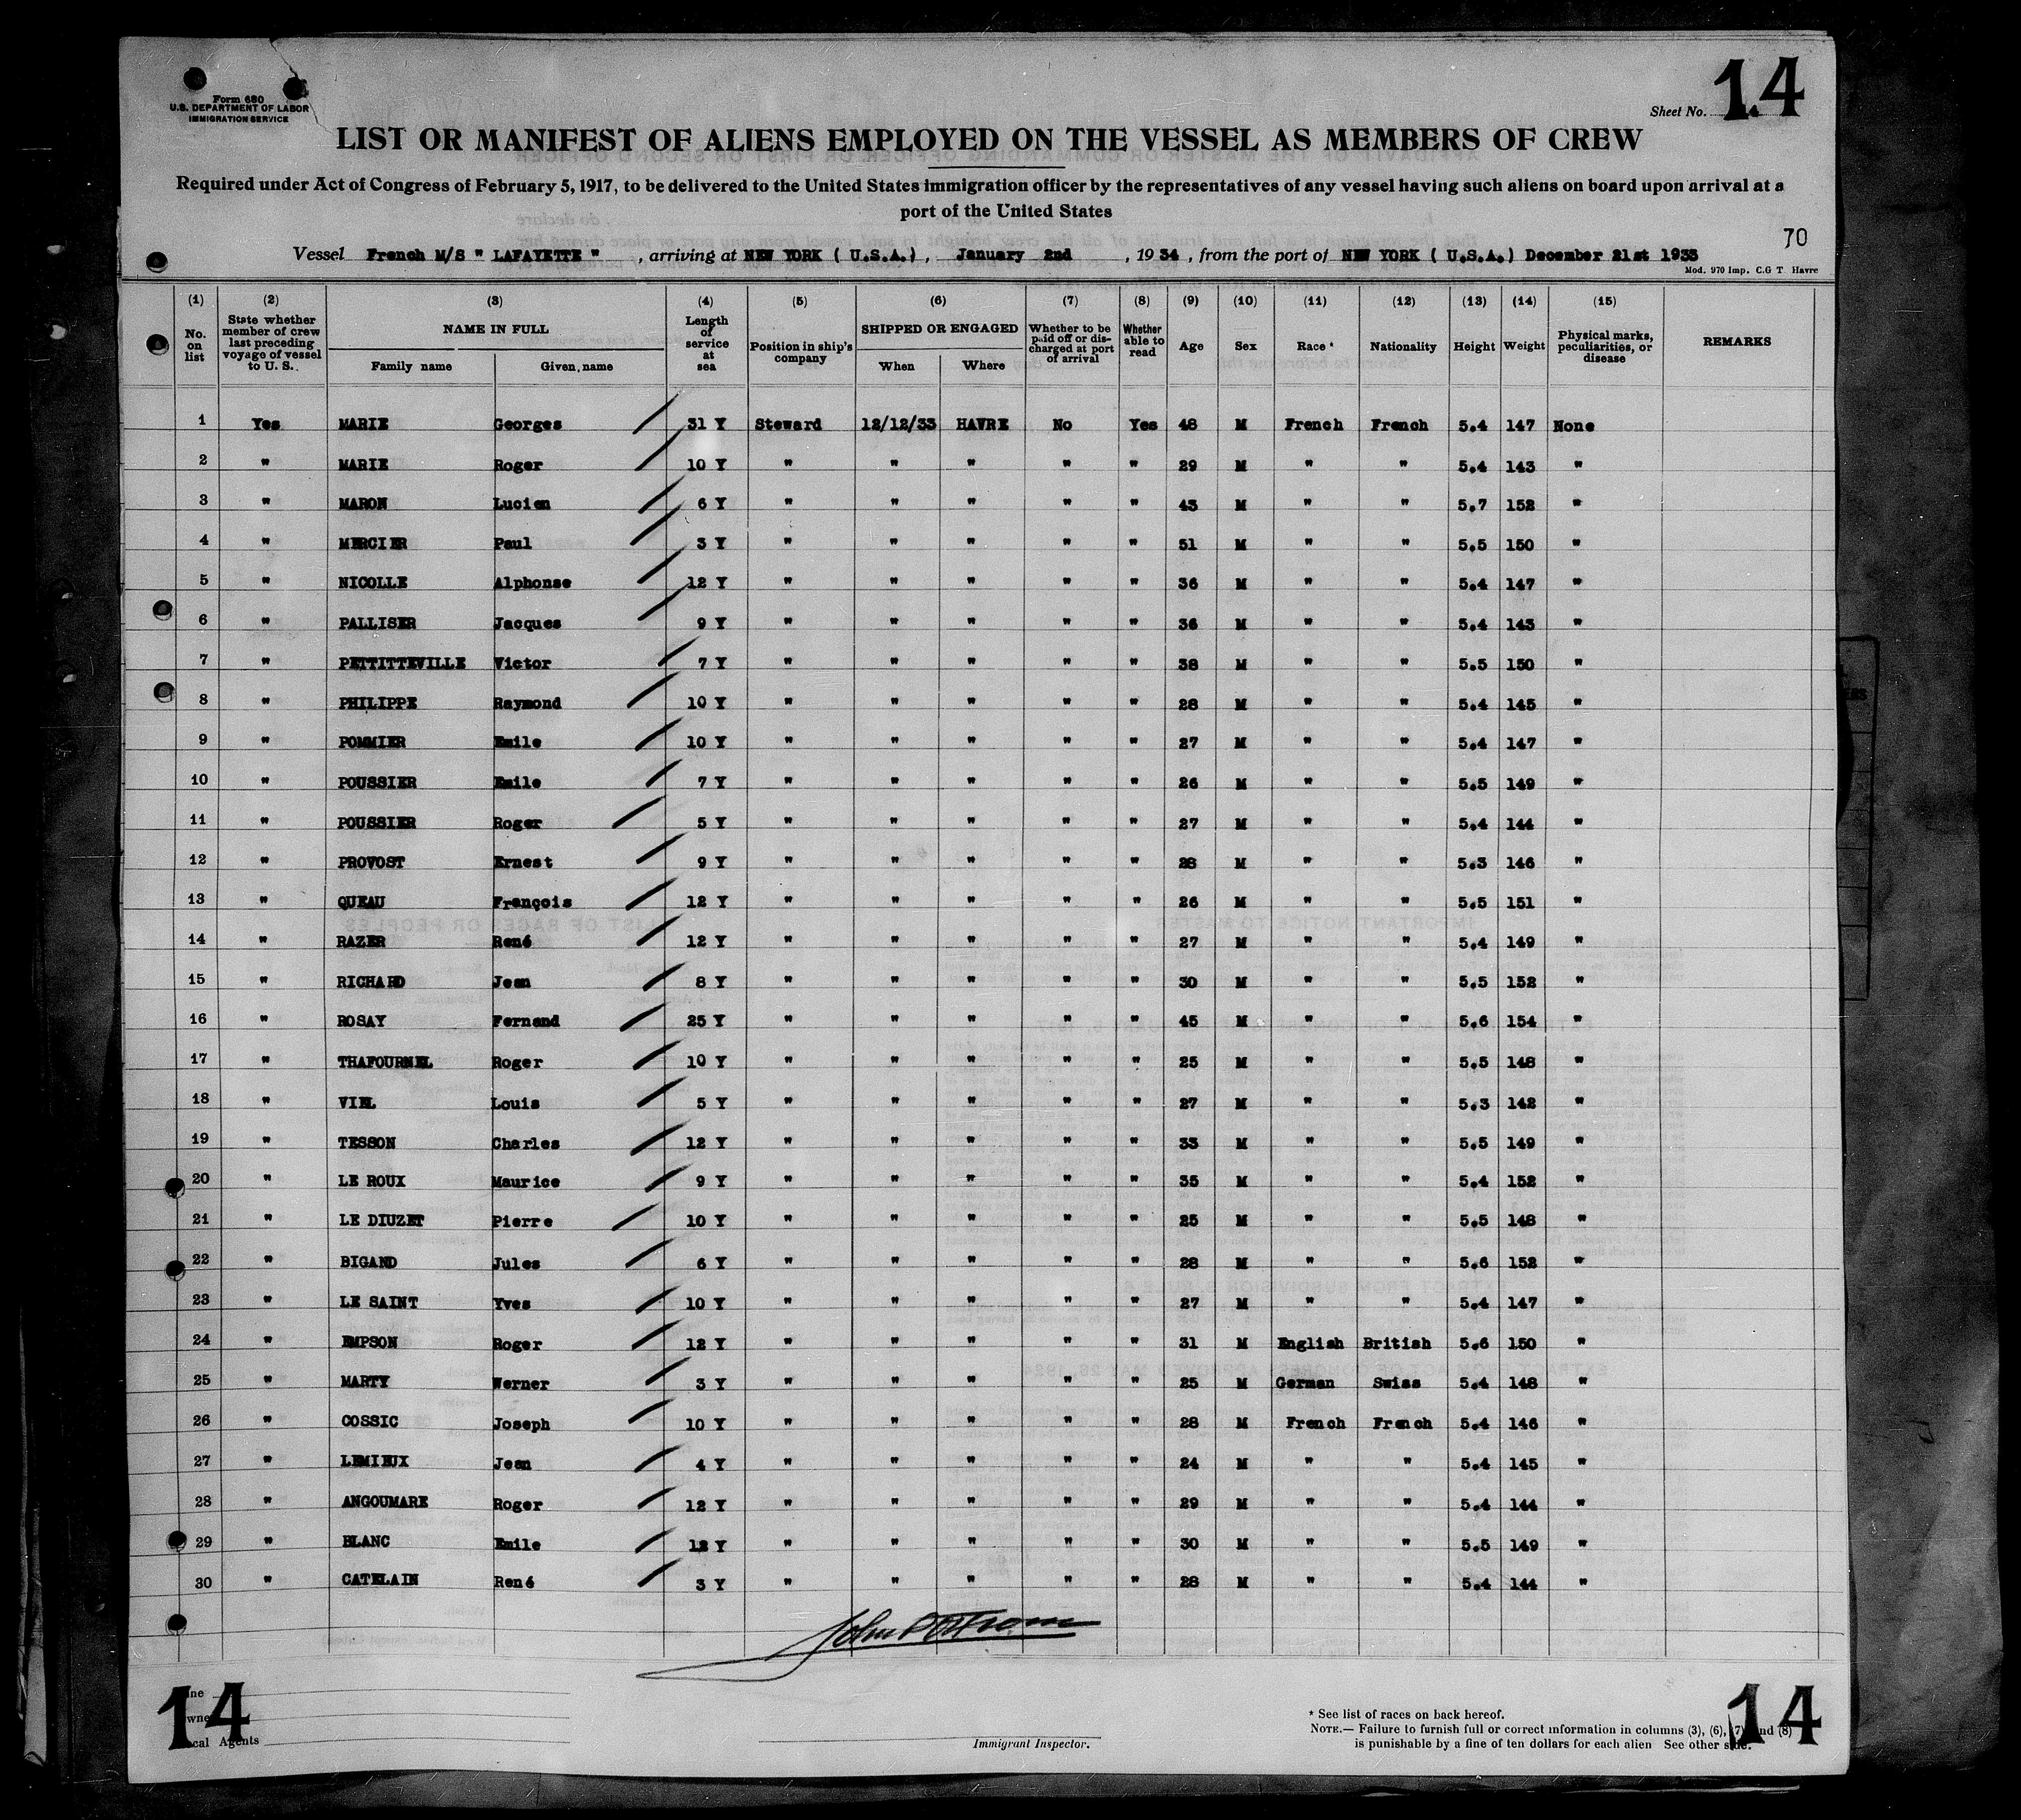 Form 680
U.S. DEPARTMENT OF LABOR
IMMIGRATION SERVICE
Sheet No. 14
LIST OR MANIFEST OF ALIENS EMPLOYED ON THE VESSEL AS MEMBERS OF CREW
Required under Act of Congress of February 5, 1917, to be delivered to the United States immigration officer by the representatives of any vessel having such aliens on board upon arrival at a
port of the United States
70
Vessel French M/S " LAFAYETTE " , arriving at NEW YORK ( U.S.A.) , January 2nd , 1934 , from the port of NEW YORK ( U.S.A.) December 21st 1933
Mod. 970 Imp. C.G T Havre
(1) (2) (3) (4) (5) (6) (7) (8) (9) (10) (11) (12) (13) (14) (15)
No. on list State whether member of crew last preceding voyage of vessel to U. S. NAME IN FULL Family name Given name Length of service at sea Position in ship's company SHIPPED OR ENGAGED When Where Whether to be paid off or discharged at port of arrival Whether able to read Age Sex Race * Nationality Height Weight Physical marks, peculiarities, or disease REMARKS
1 Yes MARIE Georges 31 Y Steward 12/12/33 HAVRE No Yes 48 M French French 5.4 147 None
2 " MARIE Roger 10 Y " " " " " 29 M " " 5.4 143 "
3 " MARON Lucien 6 Y " " " " " 43 M " " 5.7 152 "
4 " MERCIER Paul 3 Y " " " " " 51 M " " 5.5 150 "
5 " NICOLLE Alphonse 12 Y " " " " " 36 M " " 5.4 147 "
6 " PALLISER Jacques 9 Y " " " " " 36 M " " 5.4 143 "
7 " PETTITTEVILLE Victor 7 Y " " " " " 38 M " " 5.5 150 "
8 " PHILIPPE Raymond 10 Y " " " " " 28 M " " 5.4 145 "
9 " POMMIER Emile 10 Y " " " " " 27 M " " 5.4 147 "
10 " POUSSIER Emile 7 Y " " " " " 26 M " " 5.5 149 "
11 " POUSSIER Roger 5 Y " " " " " 27 M " " 5.4 144 "
12 " PROVOST Ernest 9 Y " " " " " 28 M " " 5.3 146 "
13 " QUEAU François 12 Y " " " " " 26 M " " 5.5 151 "
14 " RAZER René 12 Y " " " " " 27 M " " 5.4 149 "
15 " RICHARD Jean 8 Y " " " " " 30 M " " 5.5 152 "
16 " ROSAY Fernand 25 Y " " " " " 45 M " " 5.6 154 "
17 " THAFOURNEL Roger 10 Y " " " " " 25 M " " 5.5 148 "
18 " VIEL Louis 5 Y " " " " " 27 M " " 5.3 142 "
19 " TESSON Charles 12 Y " " " " " 33 M " " 5.5 149 "
20 " LE ROUX Maurice 9 Y " " " " " 35 M " " 5.4 152 "
21 " LE DIUZET Pierre 10 Y " " " " " 25 M " " 5.5 148 "
22 " BIGAND Jules 6 Y " " " " " 28 M " " 5.6 152 "
23 " LE SAINT Yves 10 Y " " " " " 27 M " " 5.4 147 "
24 " EMPSON Roger 12 Y " " " " " 31 M English British 5.6 150 "
25 " MARTY Werner 3 Y " " " " " 25 M German Swiss 5.4 148 "
26 " COSSIC Joseph 10 Y " " " " " 28 M French French 5.4 146 "
27 " LEMIEUX Jean 4 Y " " " " " 24 M " " 5.4 145 "
28 " ANGOUMARE Roger 12 Y " " " " " 29 M " " 5.4 144 "
29 " BLANC Emile 12 Y " " " " " 30 M " " 5.5 149 "
30 " CATELAIN René 3 Y " " " " " 28 M " " 5.4 144 "
14
Agents
Immigrant Inspector.
* See list of races on back hereof.
NOTE.— Failure to furnish full or correct information in columns (3), (6), (7) and (8)
is punishable by a fine of ten dollars for each alien See other side.
14